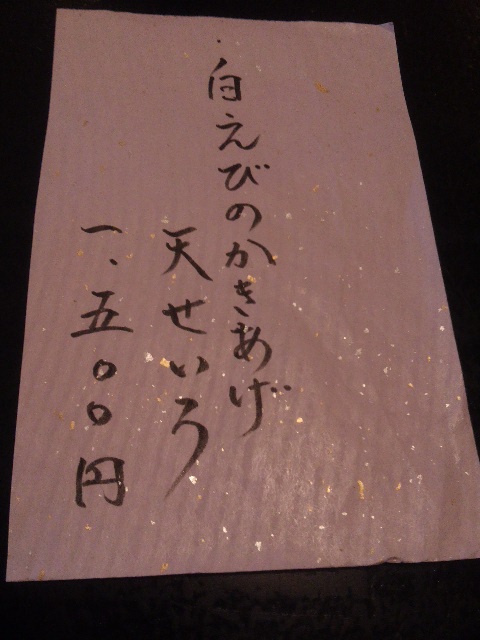 ・白えびのかきあげ
天せいろ
一、五〇〇円